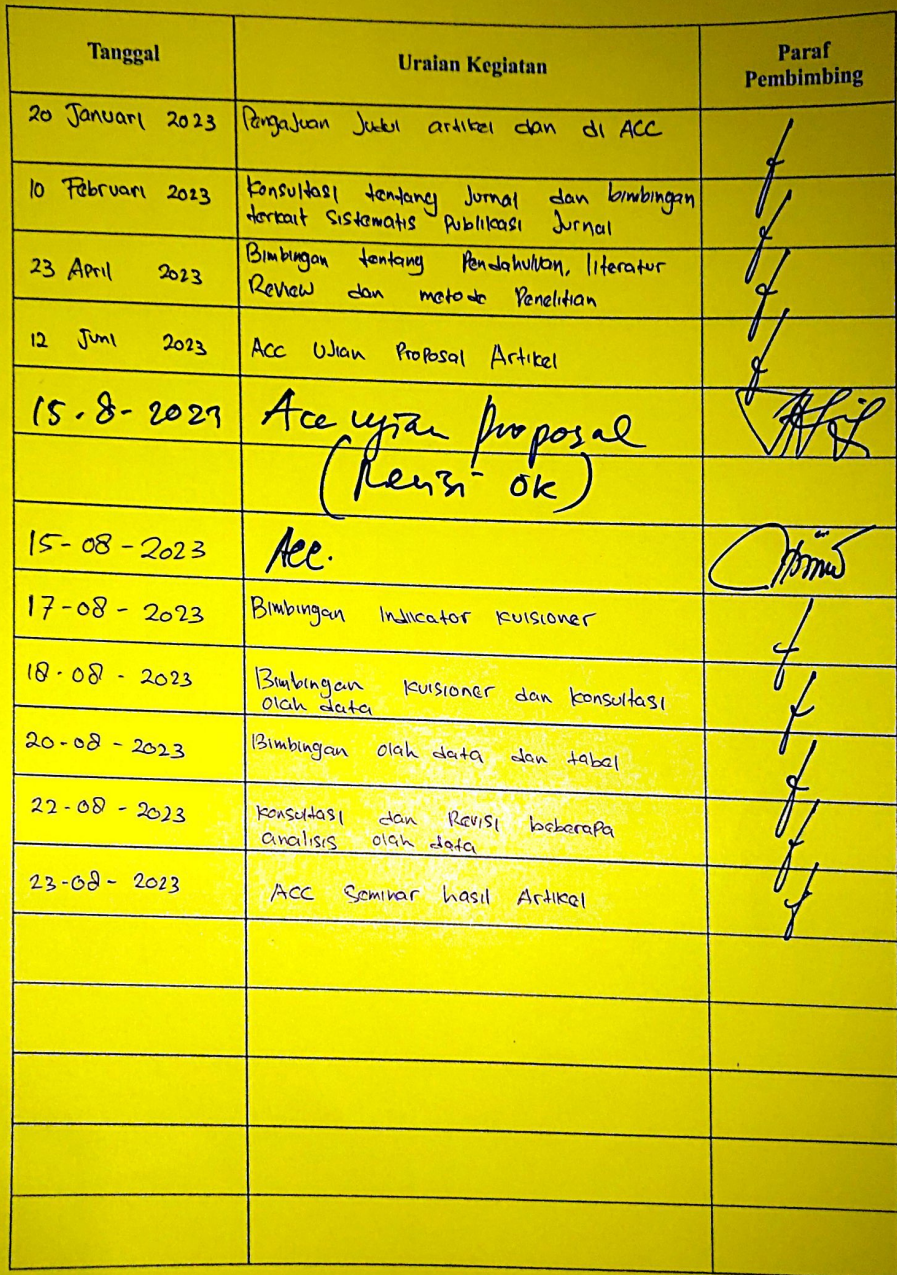 Tanggal
Uraian Kegiatan
Paraf
Pembimbing
20 Januari 2023
Pengajuan Judul artikel dan di ACC
10 Februari 2023
Konsultasi tentang Jurnal dan bimbingan
terkait Sistematis Publikasi Jurnal
23 April 2023
Bimbingan tentang Pendahuluan, literatur
Review dan metode Penelitian
12 Juni 2023
ACC Ujian Proposal Artikel
15-8-2023
Acc ujian Proposal
(Revisi OK)
15-08-2023
Acc.
17-08-2023
Bimbingan Indicator kuisioner
18-08-2023
Bimbingan kuisioner dan konsultasi
olah data
20-08-2023
Bimbingan olah data dan tabel
22-08-2023
Konsultasi dan Revisi beberapa
analisis olah data
23-08-2023
ACC Seminar hasil Artikel